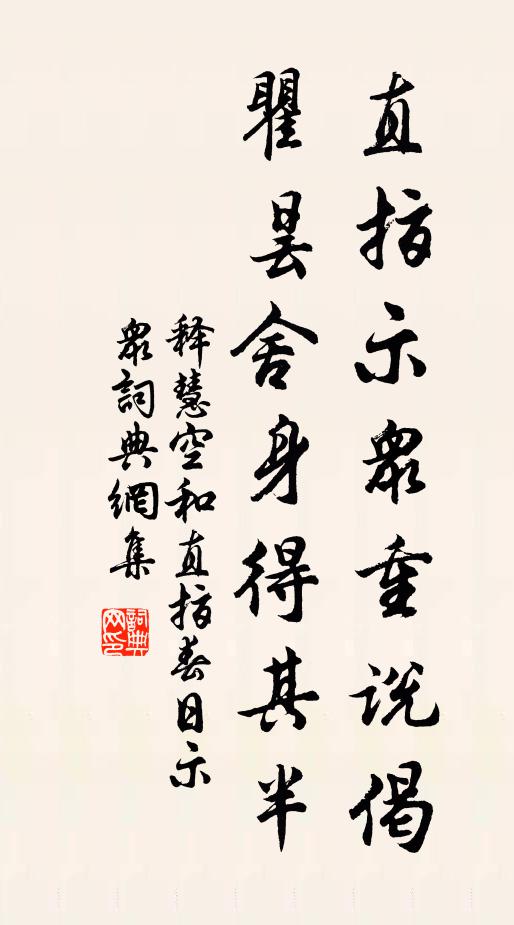 直指示眾重說偈
瞿曇舍身得其半
释慧空和直指春日示
眾詞典網集
詞典網印